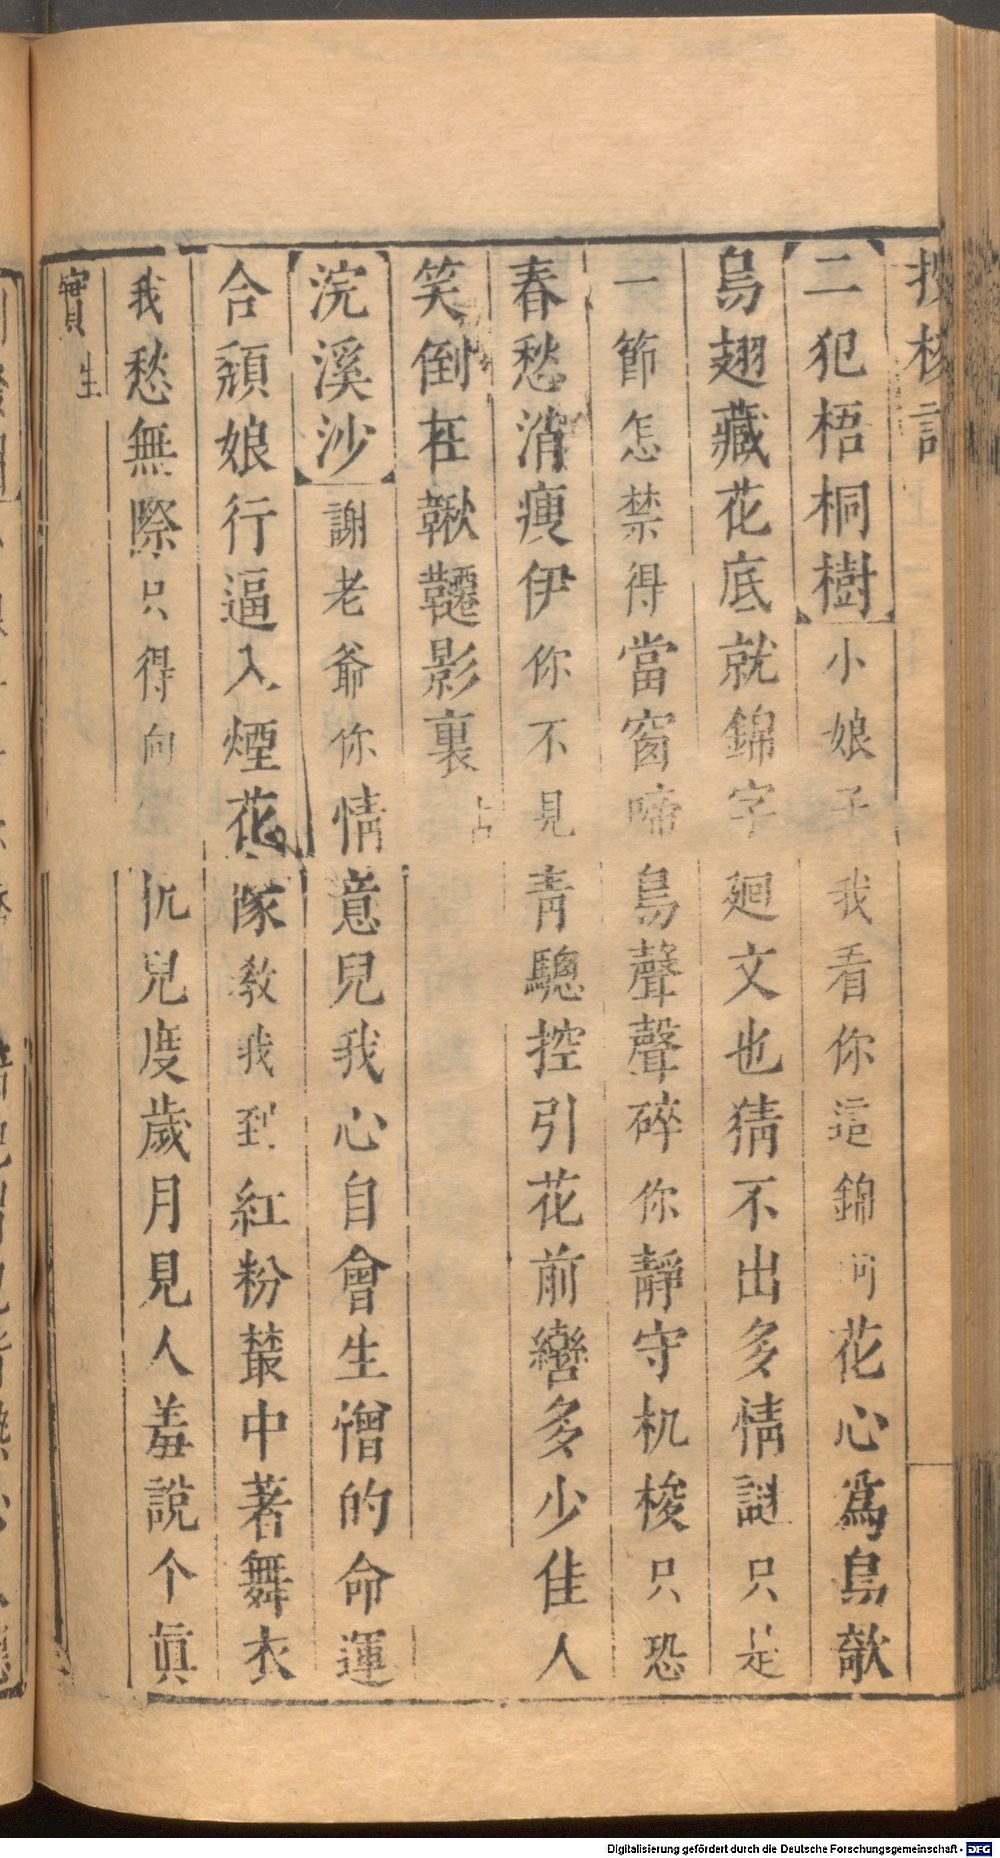 投梭記
二犯梧桐樹小娘子我看你這錦河花心爲鳥欹
鳥翅藏花底就錦字廻文也猜不出多情謎只是
一節怎禁得當窗啼鳥聲聲碎你靜守机梭只恐
春愁消瘦伊你不見青驄控引花前轡多少佳人
笑倒在鞦韆影裏 占
浣溪沙謝老爺你情意兒我心自會生憎的命運
合頹娘行逼入煙花隊教我到紅粉叢中著舞衣
我愁無際只得向 伉兒度歲月見人羞說个眞
實 生
Digitalisierung gefördert durch die Deutsche Forschungsgemeinschaft - DFG